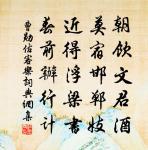 朝飲文君酒
莫宿邯鄲妓
近得浮梁書
春前辦行計
曹勛估客樂詞典網集